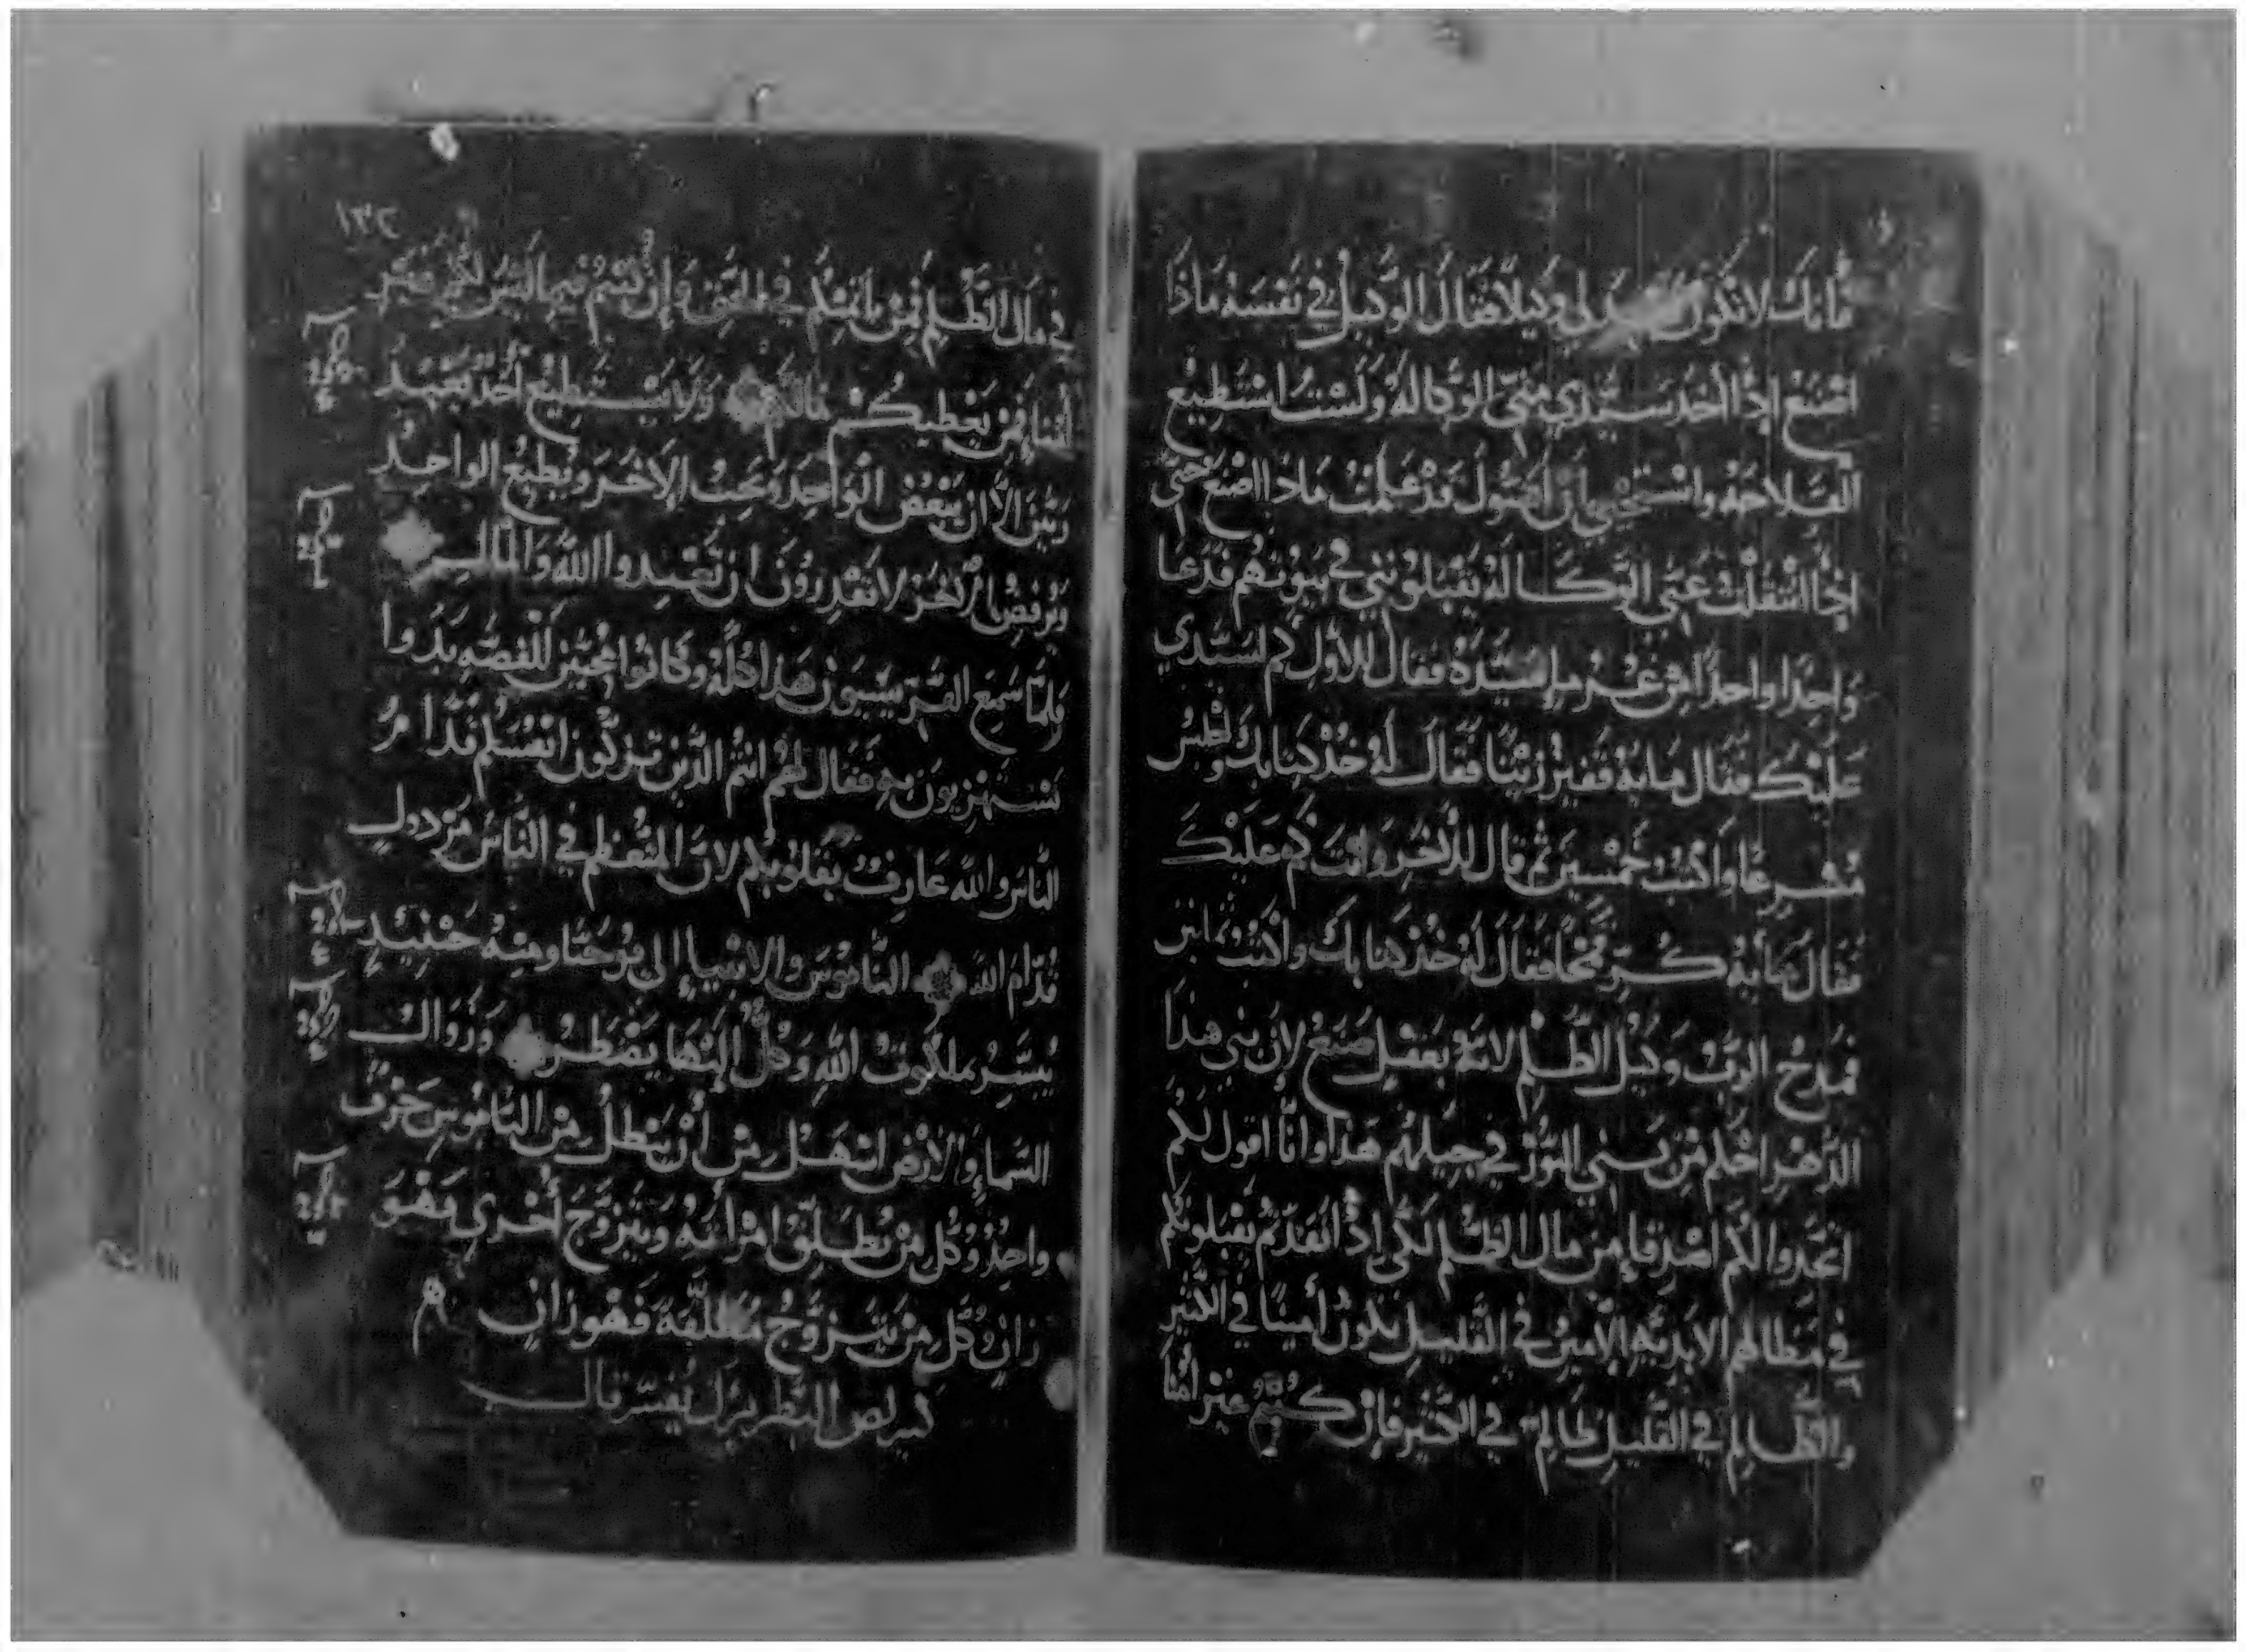 فانك لا تكون لي وكيلا فقال الوكيل في نفسه ماذا
اصنع اذا اخذ سيدي مني الوكالة ولست استطيع
الفلاحة واستحيي ان اقول قد علمت ماذا اصنع حتى
اذا انتقلت عني الوكالة يقبلونني في بيوتهم فدعا
واحدا واحدا من غرما سيده فقال للاول كم لسيدي
عليك فقال ماية قفيز زيتا فقال له خذ كتابك واجلس
مسرعا واكتب خمسين ثم قال للاخر وانت كم عليك
فقال ماية كر قمحا فقال له خذ كتابك واكتب ثمانين
فمدح الرب وكيل الظلم لانه بعقل صنع لان بني هذا
الدهر احكم من بني النور في جيلهم هذا وانا اقول لكم
اتخذوا لكم اصدقاء من مال الظلم لكي اذا نفدتم يقبلونكم
في مظالهم الابدية الامين في القليل يكون أمينا في الكثير
والظالم في القليل ظالم في الكثير فإن كنتم غير امنا
١٣٢
في مال الظلم فمن ياتمنكم في الحق وإن كنتم فيما ليس لكم غير
أمنا فمن يعطيكم مالكم ولا يستطيع أحد يعبد
ربين الا ان يبغض الواحد ويحب الاخر ويطيع الواحد
ويرفض الاخر لا تقدرون ان تعبدوا الله والمال
فلما سمع الفريسيون هذا كله وكانوا محبين للفضه بدوا
يستهزيون به فقال لهم انتم الذين تزكون انفسكم قدام
الناس والله عارف بقلوبكم لان المتعظم في الناس مرذول
قدام الله الناموس والانبياء إلى يوحنا ومنه حينيذ
يبشر بملكوت الله وكل اليها يضطر وزوال
السماء والارض اسهل من أن يبطل من الناموس حرف
واحد وكل من يطلق امراته ويتزوج أخرى فهو
زان وكل من يتزوج مطلقة فهو زان
كيرلص البطريرك يفسر قال